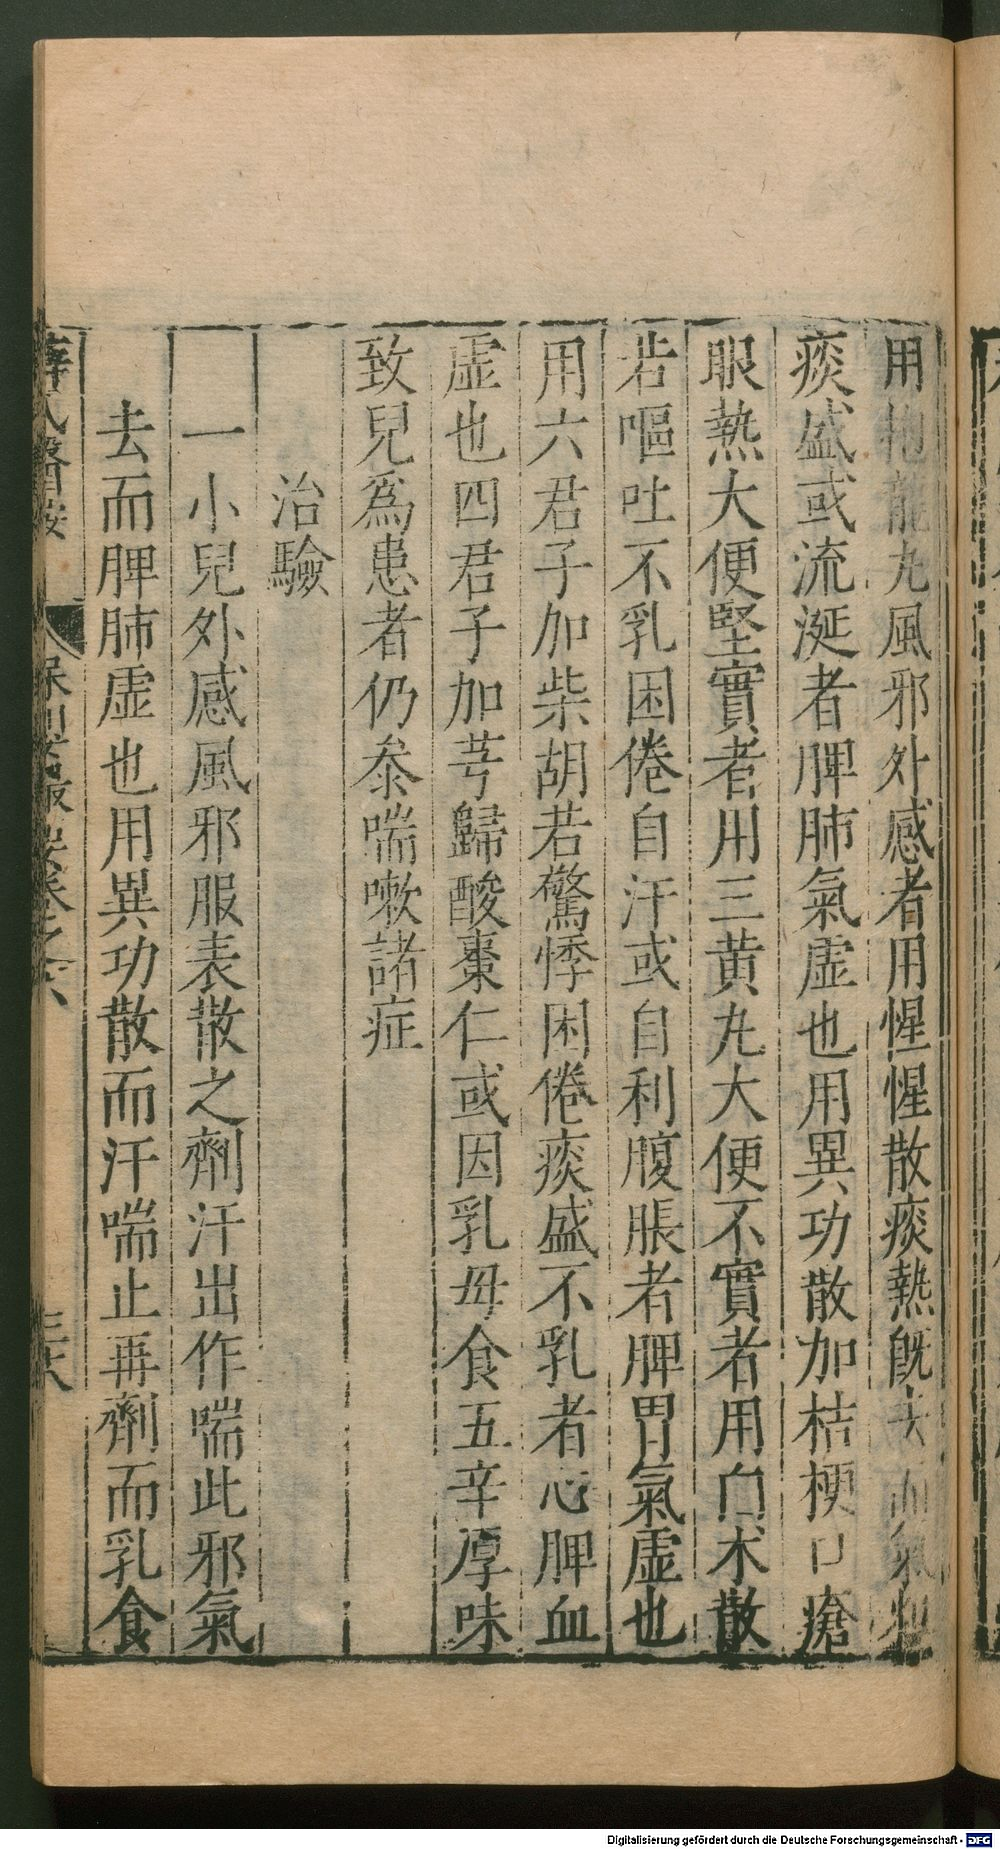 用抱龍丸風邪外感者用惺惺散痰熱旣去而氣粗
痰盛或流涎者脾肺氣虛也用異功散加桔梗口瘡
眼熱大便堅實者用三黄丸大便不實者用白术散
若嘔吐不乳困倦自汗或自利腹脹者脾胃氣虛也
用六君子加柴胡若驚悸困倦痰盛不乳者心脾血
虛也四君子加芎歸酸棗仁或因乳母食五辛厚味
致兒爲患者仍叅喘嗽諸症
治驗
一小兒外感風邪服表散之劑汗出作喘此邪氣
去而脾肺虛也用異功散而汗喘止再劑而乳食
薛氏醫按 保嬰撮要卷之六 三六
Digitalisierung gefördert durch die Deutsche Forschungsgemeinschaft - DFG